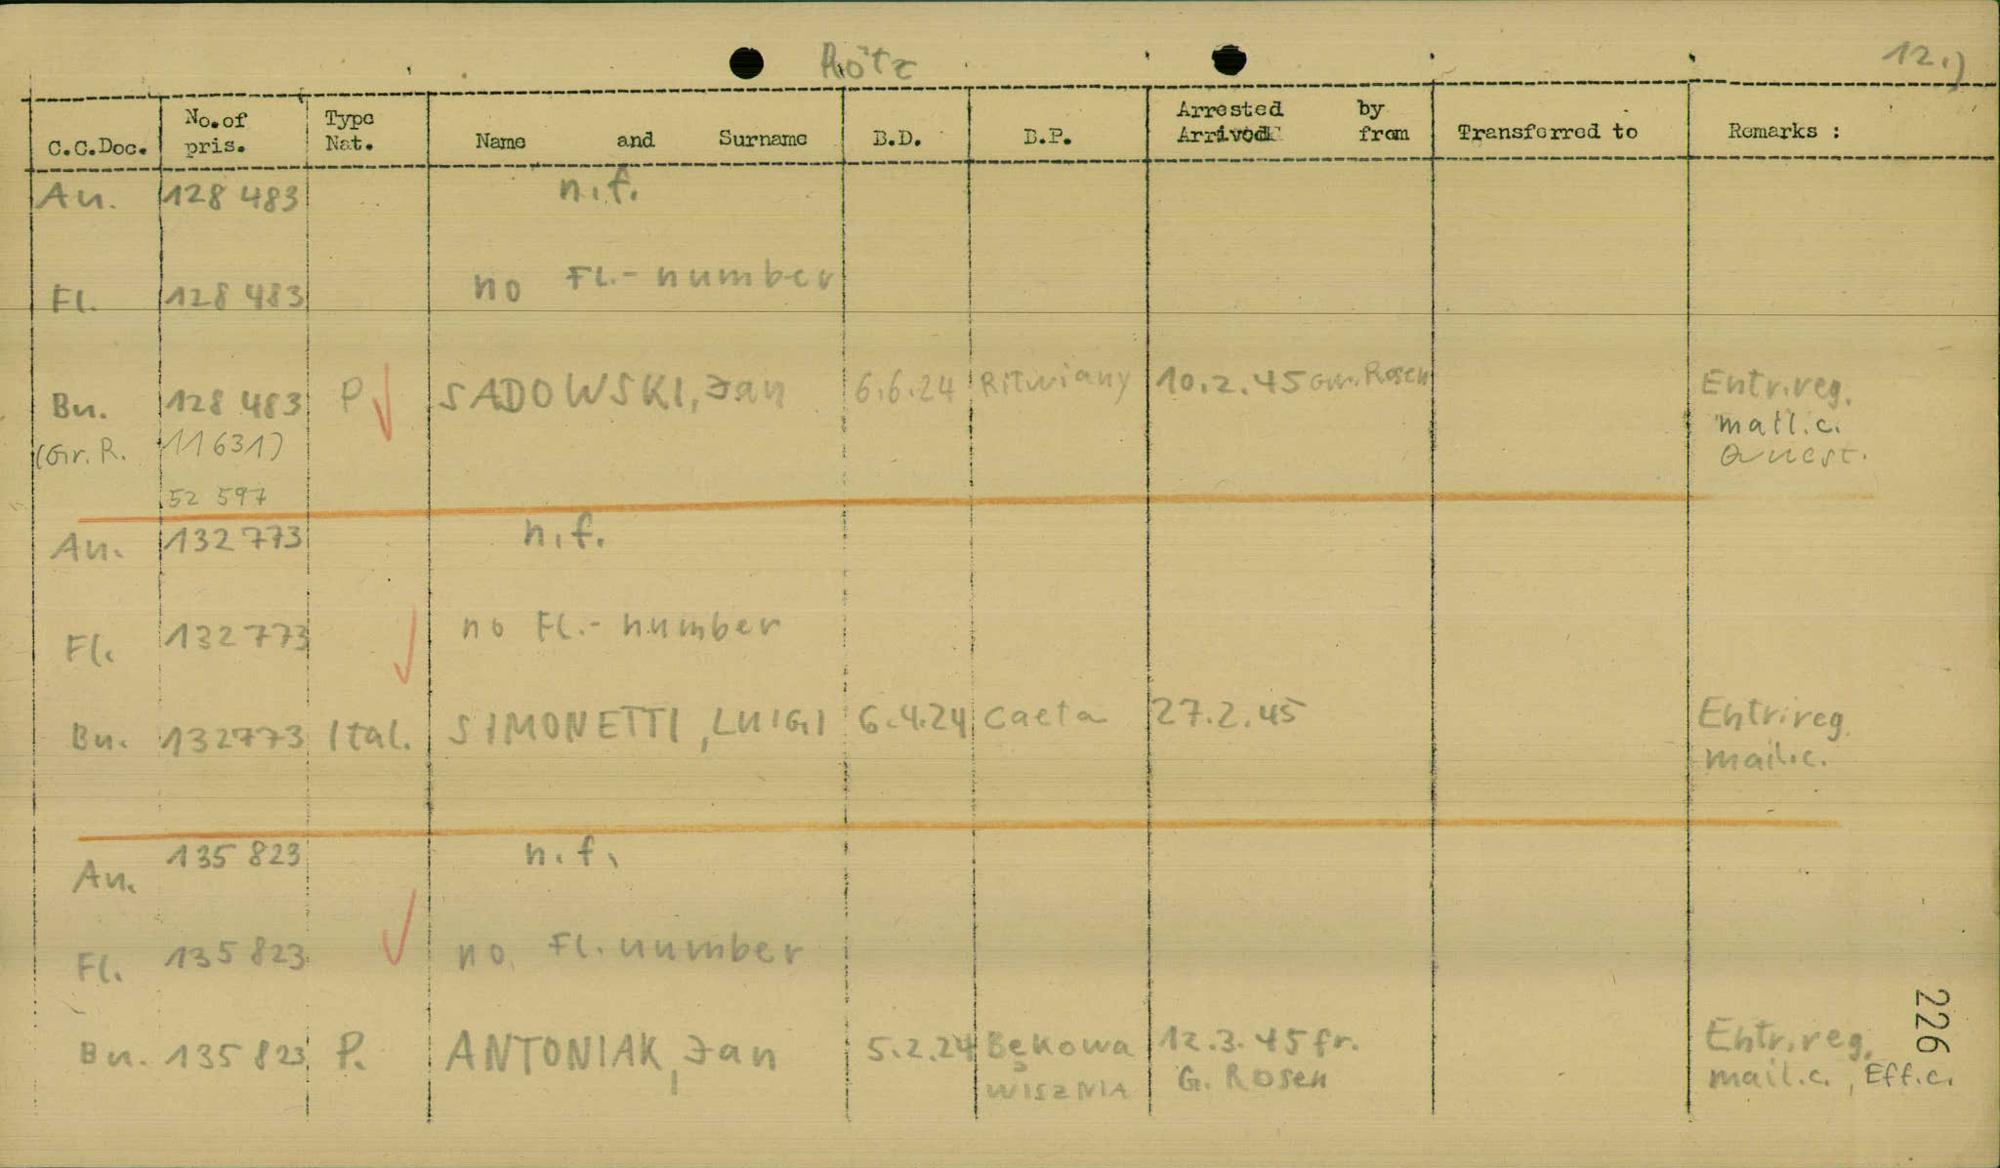 Rötz
12.)
C.C.Doc. No.of pris. Type Nat. Name and Surname B.D. B.P. Arrested by Arrived from Transferred to Remarks :
An. 128 483 n.f.
Fl. 128 483 no Fl.- number
Bu. 128 483 P SADOWSKI, Jan 6.6.24 Ritwiany 10.2.45 Gr. Rosen Entr.reg.
mail.c.
(Gr. R. 11631) Quest.
52 597
An. 132 773 n.f.
Fl. 132 773 no Fl.- number
Bu. 132773 Ital. SIMONETTI, LUIGI 6.4.24 Caeta 27.2.45 Entr.reg.
mail.c.
An. 135 823 n.f.
Fl. 135 823 no Fl. number
Bu. 135 823 P. ANTONIAK, Jan 5.2.24 Bękowa 12.3.45 fr. Entr.reg.
WISZNIA G. Rosen mail.c., Eff.c.
226